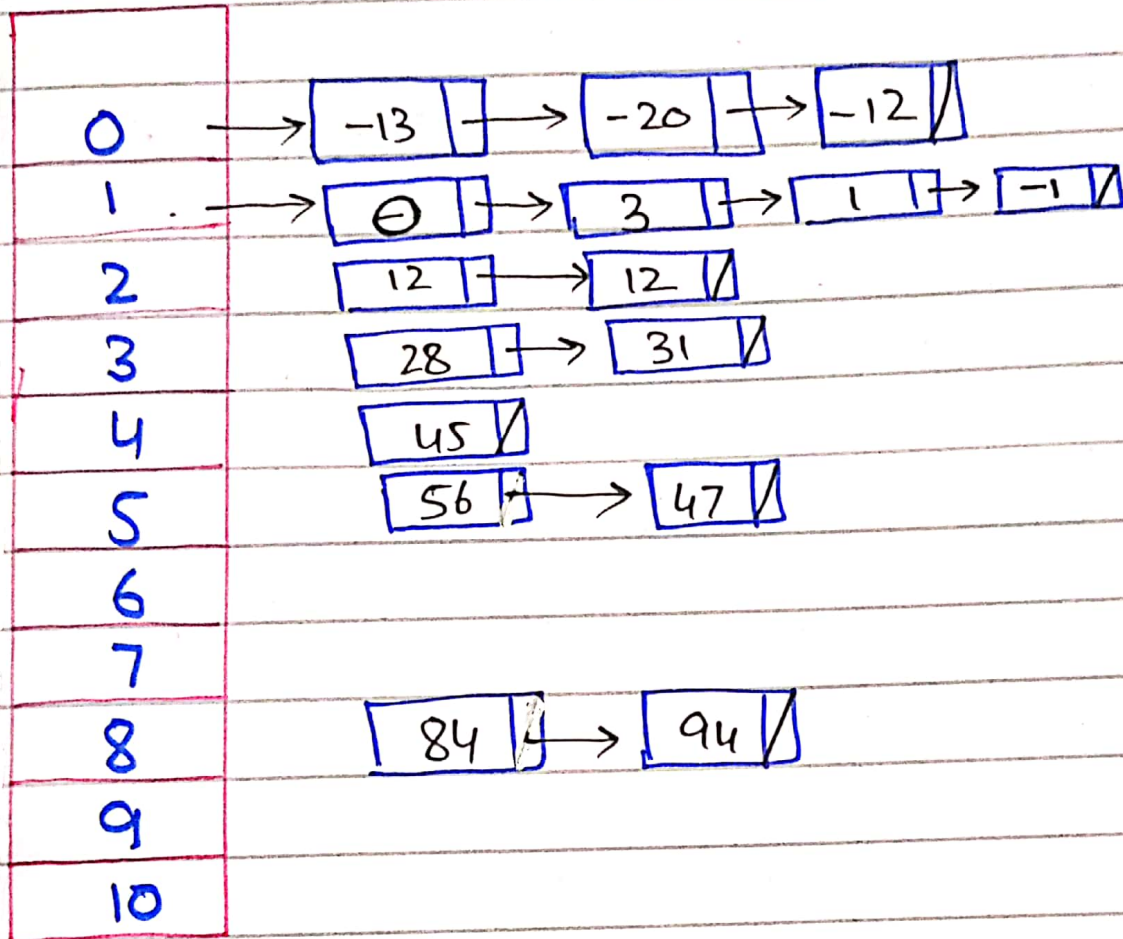 0 → -13 → -20 → -12
1 → 0 → 3 → 1 → -1
2 12 → 12
3 28 → 31
4 45
5 56 → 47
6
7
8 84 → 94
9
10